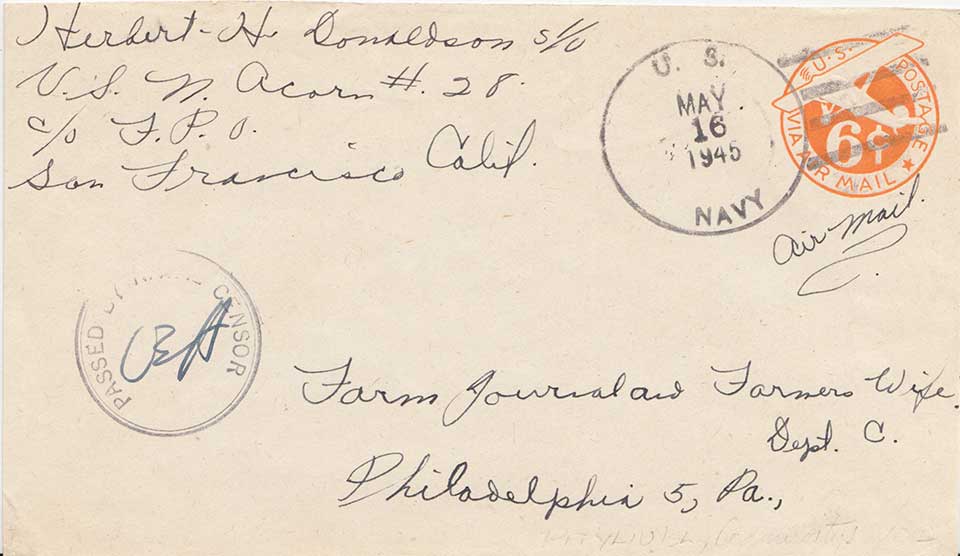 Herbert H. Donaldson S1/c
U.S.N. Acorn #. 28.
c/o F.P.O.
San Francisco Calif.
U. S.
MAY
16
1945
NAVY
U.S. POSTAGE
6¢
VIA AIR MAIL
Air Mail.
PASSED BY NAVAL CENSOR
Farm Journal and Farmers Wife.
Dept. C.
Philadelphia 5, Pa.,